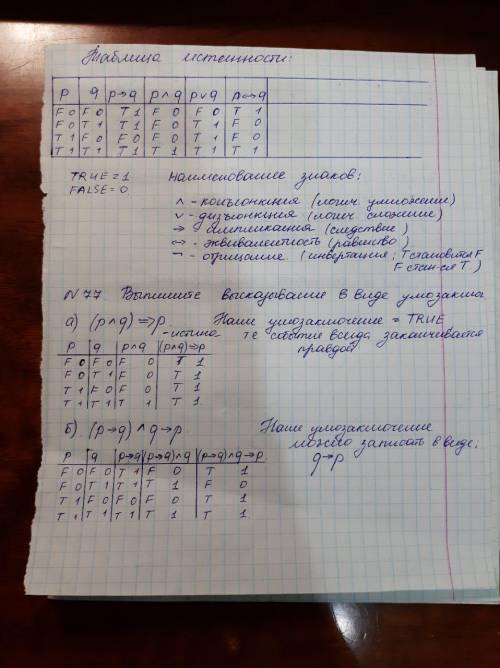 Таблица истенности:
p q p→q p∧q p∨q p↔q
F 0 F 0 T 1 F 0 F 0 T 1
F 0 T 1 T 1 F 0 T 1 F 0
T 1 F 0 F 0 F 0 T 1 F 0
T 1 T 1 T 1 T 1 T 1 T 1
TRUE = 1 наименование знаков:
FALSE = 0
∧ - конъюнкция (логич. умножение)
∨ - дизъюнкция (логич. сложение)
→ - импликация (следствие)
↔ - эквивалентность (равенство)
¬ - отрицание (инвертация; T становится F
F стан-ся T.)
N 77 Выпишите высказывание в виде умозакл
а) (p∧q)⇒p Наше умозаключение = TRUE
- истина те событие всегда заканчивается
правдой
p q p∧q (p∧q)⇒p
F 0 F 0 F 0 T 1
F 0 T 1 F 0 T 1
T 1 F 0 F 0 T 1
T 1 T 1 T 1 T 1
б) (p→q)∧q→p. Наше умозаключение
можно записать в виде:
q→p
p q p→q (p→q)∧q (p→q)∧q→p.
F 0 F 0 T 1 F 0 T 1
F 0 T 1 T 1 T 1 F 0
T 1 F 0 F 0 F 0 T 1
T 1 T 1 T 1 T 1 T 1